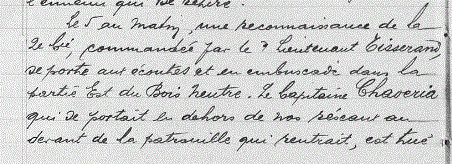 l'ennemi qui se
Le 5 au matin, une reconnaissance de la
2e Cie, commandée par le Lieutenant Tisserand,
se porte aux écoutes et en embuscade dans la
partie Est du Bois Neutre. Le Capitaine Chaveria
qui se portait en dehors de nos réseaux au
devant de la patrouille qui rentrait, est tué